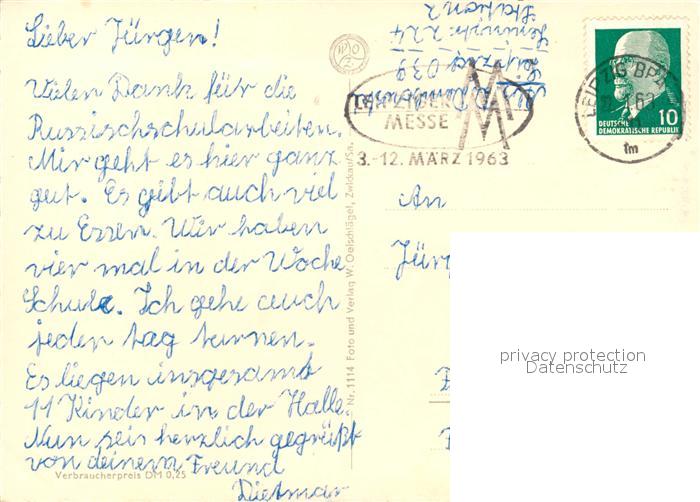 Lieber Jürgen!
Vielen Dank für die
Russischschularbeiten.
Mir geht es hier ganz
gut. Es gibt auch viel
zu Essen. Wir haben
vier mal in der Woche
Schule. Ich gehe auch
jeden tag turnen.
Es liegen insgesamt
11 Kinder in der Halle.
Nun seis herzlich gegrüßt
von deinem Freund
Dietmar
Verbraucherpreis DM 0,25
Nr. 1114 Foto und Verlag W. Oelschlägel, Zwickau/Sa.
Leipzig 039
Station 2
LEIPZIGER
MESSE
3.-12. MÄRZ 1963
LEIPZIG BPA
tm
10
DEUTSCHE
DEMOKRATISCHE REPUBLIK
An
Jürg
privacy protection
Datenschutz